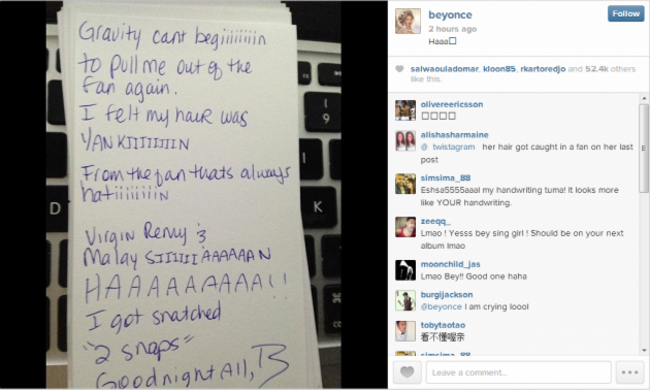 Gravity cant begiiiiiiiin
to pull me out of the
fan again.
I felt my hair was
YANKIIIIIIIN
From the fan thats always
hatiiiiiiiiN
Virgin Remy
Malay SIIIIIIAAAAAAN
HAAAAAAAAA!!
I got snatched
"2 snaps"
Goodnight All, B
9
D
K
⌘
beyonce
Follow
2 hours ago
Haaa□
salwaouladomar, kloon85, rkartoredjo and 52.4k others
like this.
olivereericsson
□□□□
alishasharmaine
@ twistagram her hair got caught in a fan on her last
post
simsima_88
Eshsa5555aaal my handwriting tuma! It looks more
like YOUR handwriting.
zeeqq_
Lmao ! Yesss bey sing girl ! Should be on your next
album lmao
moonchild_jas
Lmao Bey!! Good one haha
burgijackson
@beyonce I am crying loool
tobytaotao
看不懂喔亲
simsima_88
Leave a comment...